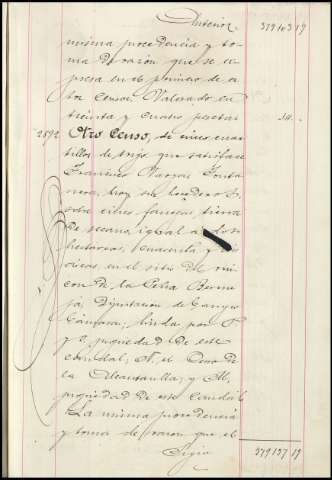 Anterior 379103 19
misma procedencia y to-
ma de razon que se es-
presa en el primero de es-
tos censos. Valorado en
treinta y cuatro pesetas 34.
2592 Otro Censo, de cinco cuar-
tillos de trigo que satisface
Francisco
hoy sus herederos,
sobre cinco fanegas, tierra
de secano, igual a dos
hectareas, cuarenta y
áreas, en el sitio del rin-
con de la Peña Berme-
ja, Diputacion de Campo
Cámara; linda por S.
y propiedad de este
caudal; N. el
la Alcantarilla; y M.
propiedad de este Caudal.
La misma procedencia
y toma de razon que el
Sigue 379137 19